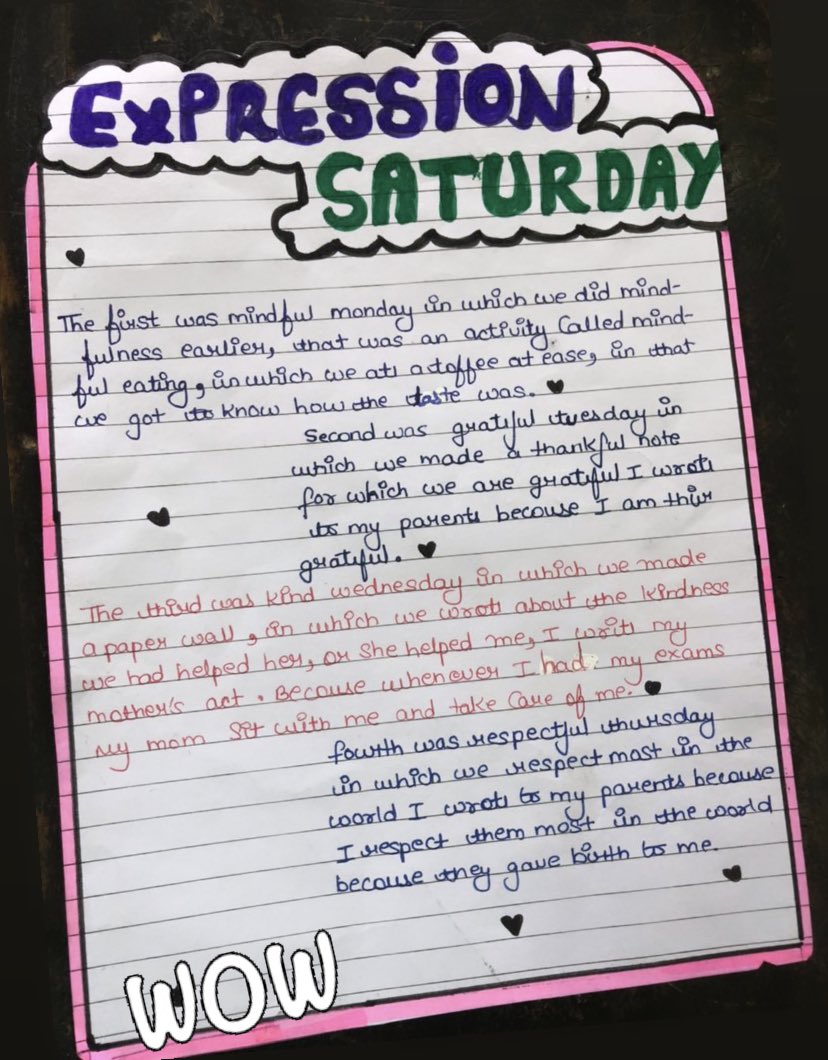 EXPRESSION
SATURDAY
The first was mindful monday in which we did mind-
fulness earlier, that was an activity Called mind-
ful eating, in which we ate a toffee at ease, in that
we got to know how the taste was.
Second was grateful tuesday in
which we made a thankful note
for which we are grateful I wrote
to my parents because I am thir
grateful.
The third was kind wednesday in which we made
a paper wall, in which we wrote about the kindness
we had helped her, or she helped me, I write my
mother's act. Because whenever I had my exams
My mom Sit with me and take Care of me.
fourth was respectful thursday
in which we respect most in the
world I wrote to my parents because
I respect them most in the woorld
because they gave birth to me.
WOW